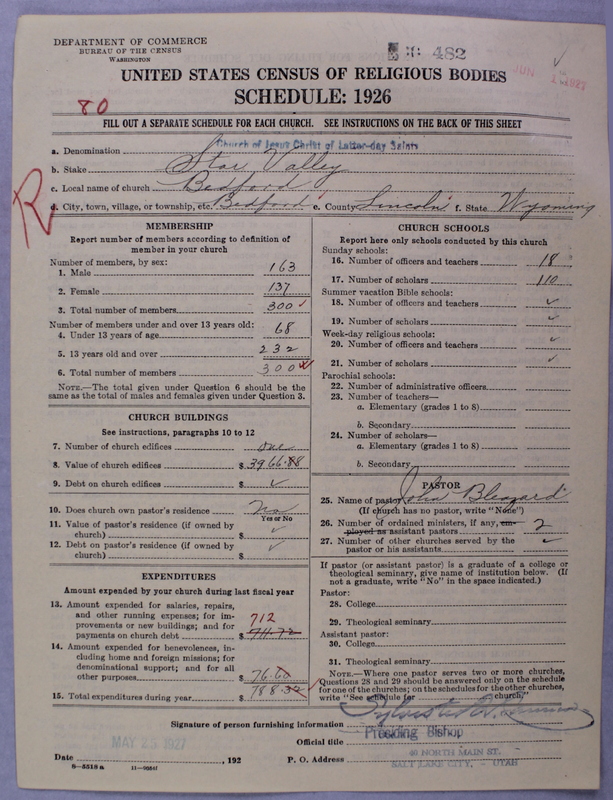 DEPARTMENT OF COMMERCE
BUREAU OF THE CENSUS
WASHINGTON
482
JUN 1927
UNITED STATES CENSUS OF RELIGIOUS BODIES
SCHEDULE: 1926
80
FILL OUT A SEPARATE SCHEDULE FOR EACH CHURCH. SEE INSTRUCTIONS ON THE BACK OF THIS SHEET
a. Denomination Church of Jesus Christ of Latter-day Saints
b. Stake Star Valley
c. Local name of church Bedford
R
d. City, town, village, or township, etc. Bedford e. County Lincoln f. State Wyoming
MEMBERSHIP
Report number of members according to definition of
member in your church
Number of members, by sex:
1. Male 163
2. Female 137
3. Total number of members 300
Number of members under and over 13 years old:
4. Under 13 years of age 68
5. 13 years old and over 232
6. Total number of members 300
NOTE.—The total given under Question 6 should be
same as the total of males and females given under Question 3.
CHURCH BUILDINGS
See instructions, paragraphs 10 to 12
7. Number of church edifices one
8. Value of church edifices $ 3966.88
9. Debt on church edifices $
10. Does church own pastor's residence No
Yes or No
11. Value of pastor's residence (if owned by
church) $
12. Debt on pastor's residence (if owned by
church) $
EXPENDITURES
Amount expended by your church during last fiscal year
13. Amount expended for salaries, repairs,
and other running expenses; for im-
provements or new buildings; and for
payments on church debt $ 712 711.72
14. Amount expended for benevolences, in-
cluding home and foreign missions; for
denominational support; and for all
other purposes $ 76.60
15. Total expenditures during year $ 788.32
CHURCH SCHOOLS
Report here only schools conducted by this church
Sunday schools:
16. Number of officers and teachers 18
17. Number of scholars 110
Summer vacation Bible schools:
18. Number of officers and teachers
19. Number of scholars
Week-day religious schools:
20. Number of officers and teachers
21. Number of scholars
Parochial schools:
22. Number of administrative officers
23. Number of teachers—
a. Elementary (grades 1 to 8)
b. Secondary
24. Number of scholars—
a. Elementary (grades 1 to 8)
b. Secondary
PASTOR
25. Name of pastor John Bleazard
(If church has no pastor, write "None")
26. Number of ordained ministers, if any, em-
ployed as assistant pastors 2
27. Number of other churches served by the
pastor or his assistants
If pastor (or assistant pastor) is a graduate of a college or
theological seminary, give name of institution below. (If
not a graduate, write "No" in the space indicated.)
Pastor:
28. College
29. Theological seminary
Assistant pastor:
30. College
31. Theological seminary
NOTE.—Where one pastor serves two or more churches,
Questions 28 and 29 should be answered only on the schedule
for one of the churches; on the schedules for the other churches,
write "See schedule for church."
Signature of person furnishing information
Official title Presiding Bishop
MAY 25 1927
Date , 192 P. O. Address 40 NORTH MAIN ST.
SALT LAKE CITY, - UTAH
8-5518a 11-9954f